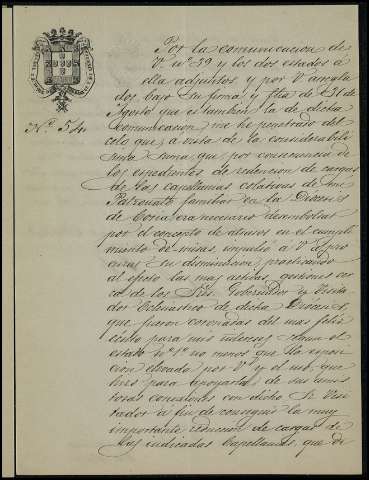 Por la comunicacion de
V. nº 59 y los dos estados a
ella adjuntos y por V. arregla
dos bajo su firma y fha de 31 de
Agosto que es tambien la de dicha
Nº. 54.
comunicacion, me he penetrado del
celo que, a vista de la considerabilí
sima suma, que por consecuencia de
los espedientes de redencion de cargas
de las capellanias colativas de mi
Patronato familiar en la Diócesis
de Coria, era necesario desembolsar
por el concepto de atrasos en el cumpli
miento de misas, impulsó a V. a pro
curar su disminucion, practicando
al efecto las mas activas gestiones cer
ca de los Sres. Gobernador y Visita
dor Eclesiástico de dicha Diócesis,
que fueron coronadas del mas feliz
exito para mis intereses
estado nº 1º no menos que la esposi
cion elevada por V. y el
hizo para apoyarla de sus amis
tosas conexiones con dicho Sr. Visi
tador a fin de conseguir la muy
importante reduccion de cargas de
las indicadas Capellanias, que de